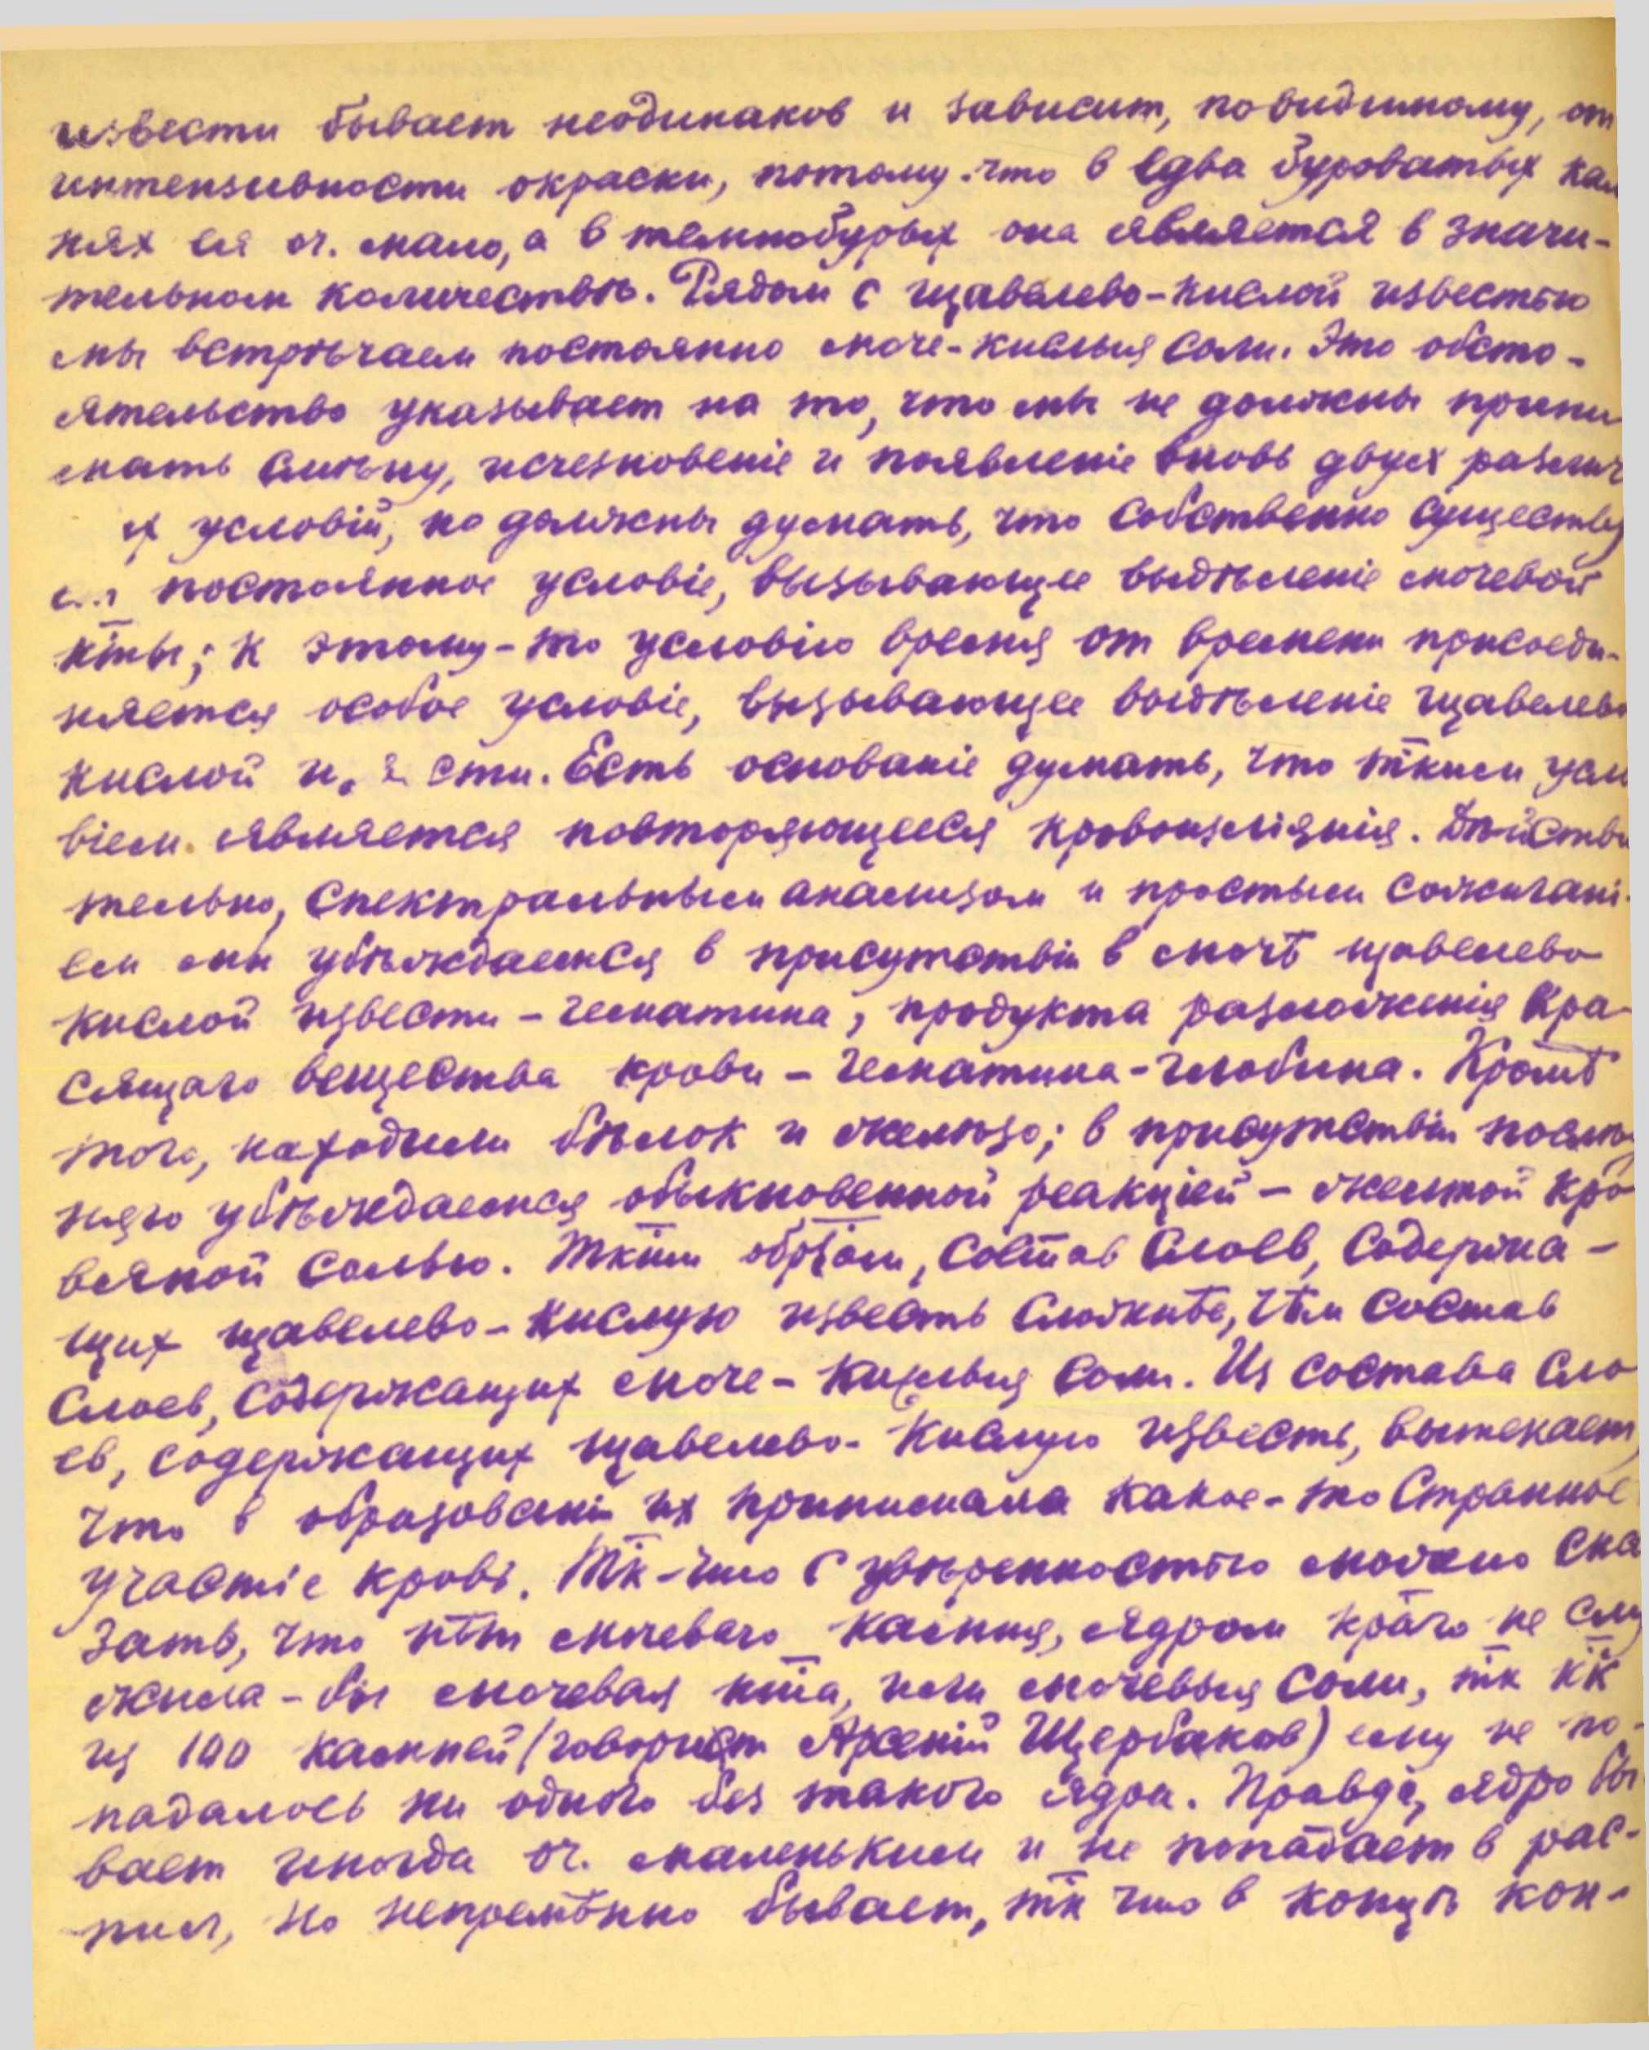 извести бывает неодинаков и зависит, повидимому, от
интенсивности окраски, потому-что в едва буроватых кам
нях ея оч. мало, а в темнобурых она является в значи-
тельном количествѣ. Рядом с щавелево-кислой известью
мы встрѣчаем постоянно моче-кислыя соли. Это обсто-
ятельство указывает на то, что мы не должны прини
мать смѣну, исчезновеніе и появленіе вновь двух различ
х условій, но должны думать, что собственно существу
постоянное условіе, вызывающее выдѣленіе мочевой
к̅ты; к этому-то условію время от времени присоеди-
няется особое условіе, вызывающее выдѣленіе щавелево
кислой и сти. Есть основаніе думать, что т̅ким усло
віем является повторяющееся кровоизліянія. Дѣйстви
тельно, спектральным анализом и простым сожигані-
ем мы убѣждаемся в присутствіи в мочѣ щавелево
кислой извести – гематина, продукта разложенія кра-
сящаго вещества крови – гематина-глобина. Кромѣ
того, находили бѣлок и желѣзо; в присутствіи послѣд
няго убѣждаемся обыкновенной реакціей – желтой кро
вяной солью. Тк̅им обр̅зом, сос̅тав слоев, содержа-
щих щавелево-кислую известь сложнѣе, чѣм состав
слоев, содержащих моче-кислыя соли. Из состава сло
ев, содержащих щавелево-кислую известь, вытекает,
что в образовані их принимала какое-то странное
участіе кровь. Т̅к-что с увѣренностью можно ска
зать, что нѣт мочевого камня, ядром кр̅аго не слу
жила-бы мочевая к̅та, или мочевыя соли, т̅к к̅к
из 100 камней (говорит Арсеній Щербаков) ему не по-
падалось ни одного без такого ядра. Правда, ядро бы
вает иногда оч. маленьким и не попадает в рас-
пил, но непремѣнно бывает, т̅к что в концѣ кон-